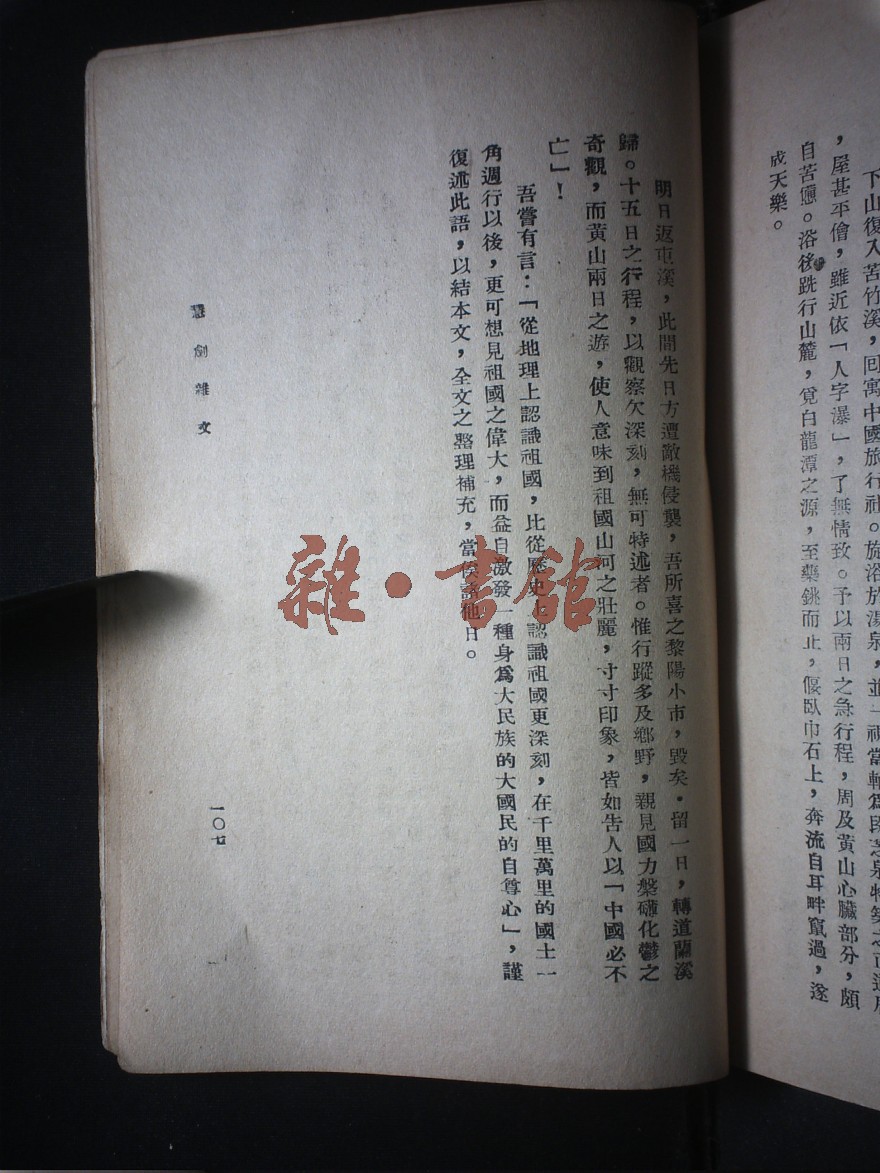 下山復入苦竹溪，回寓中國旅行社。旋浴於湯泉，並一視當軸爲
，屋甚平儈，雖近依「人字瀑」，了無情致。予以兩日之急行程，周及黃山心臟部分，頗
自苦憊。浴後跣行山麓，覓白龍潭之源，至藥銚而止，偃臥巾石上，奔流自耳畔竄過，遂
成天樂。
明日返屯溪，此間先日方遭敵機侵襲，吾所喜之黎陽小市，毀矣·留一日，轉道蘭溪
歸。十五日之行程，以觀察欠深刻，無可特述者。惟行蹤多及鄉野，親見國力槃礴化鬱之
奇觀，而黃山兩日之游，使人意味到祖國山河之壯麗，寸寸印象，皆如告人以「中國必不
亡」！
吾嘗有言：「從地理上認識祖國，比從歷史上認識祖國更深刻，在千里萬里的國土一
角週行以後，更可想見祖國之偉大，而益自激發一種身爲大民族的大國民的自尊心」，謹
復述此語，以結本文，全文之整理補充，當俟諸他日。
劇雜文
一〇七
雜·書館